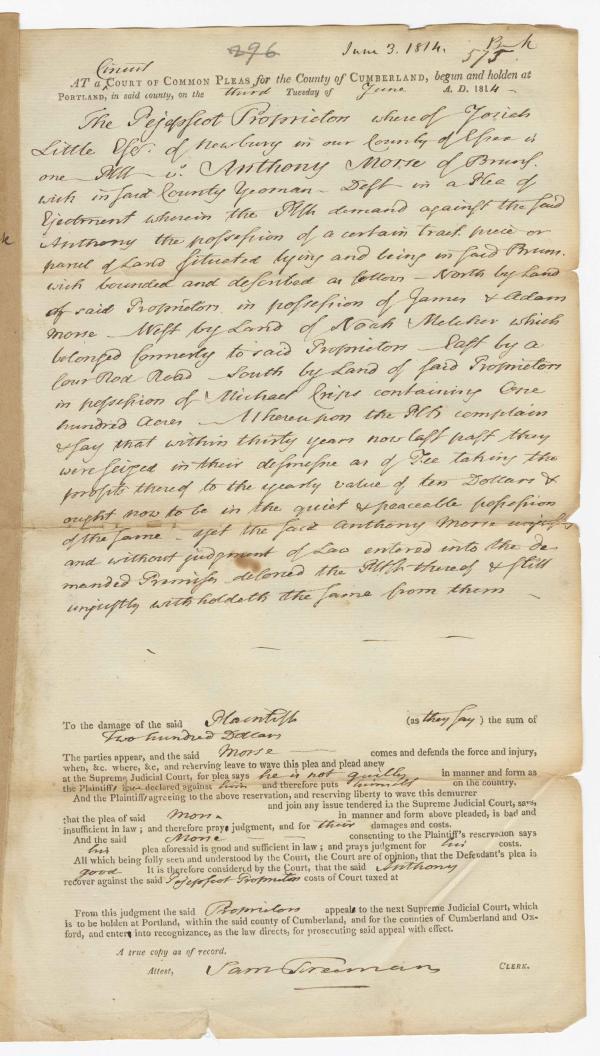 296 June 3. 1814. B—k
575
Circuit
AT a COURT OF COMMON PLEAS for the County of CUMBERLAND, begun and holden at
PORTLAND, in said county, on the third Tuesday of June A. D. 1814 -
The Pejepscot Proprietors whereof Josiah
Little Esqr. of Newbury in our County of Essex is
one - Plffs vs. Anthony Morse of Bruns-
wick in said County Yeoman - Deft in a Plea of
Ejectment wherein the Plffs demand against the said
Anthony the possession of a certain tract piece or
parcel of Land situated lying and being in said Bruns-
wick bounded and described as follows - North by Land
of said Proprietors in possession of James & Adam
Morse - West by Land of Noah Melcher which
belonged formerly to said Proprietors - East by a
four Rod Road - South by Land of said Proprietors
in possession of Michael Crips containing One
hundred Acres - Whereupon the Plffs complain
& say that within thirty years now last past they
were seized in their demesne as of Fee taking the
profits thereof to the yearly value of ten Dollars &
ought now to be in the quiet & peaceable possession
of the same - yet the said Anthony Morse unjustly
and without judgment of Law entered into the de-
manded Premises deforced the Plffs thereof & still
unjustly withholdeth the same from them -
To the damage of the said Plaintiffs (as they say) the sum of
Two hundred Dollars
The parties appear, and the said Morse comes and defends the force and injury,
when, &c. where, &c. and reserving leave to wave this plea and plead anew
at the Supreme Judicial Court, for plea says he is not guilty in manner and form as
the Plaintiffs have declared against him and therefore puts himself on the country.
And the Plaintiffs agreeing to the above reservation, and reserving liberty to wave this demurrer
and join any issue tendered in the Supreme Judicial Court, says,
that the plea of said Morse in manner and form above pleaded, is bad and
insufficient in law; and therefore prays judgment, and for their damages and costs.
And the said Morse consenting to the Plaintiff's reservation says
his plea aforesaid is good and sufficient in law; and prays judgment for his costs.
All which being fully seen and understood by the Court, the Court are of opinion, that the Defendant's plea is
good It is therefore considered by the Court, that the said Anthony
recover against the said Pejepscot Proprietors costs of Court taxed at
From this judgment the said Proprietors appeals to the next Supreme Judicial Court, which
is to be holden at Portland, within the said county of Cumberland, and for the counties of Cumberland and Ox-
ford, and enters into recognizance, as the law directs, for prosecuting said appeal with effect.
A true copy as of record.
Attest, Sam Freeman CLERK.